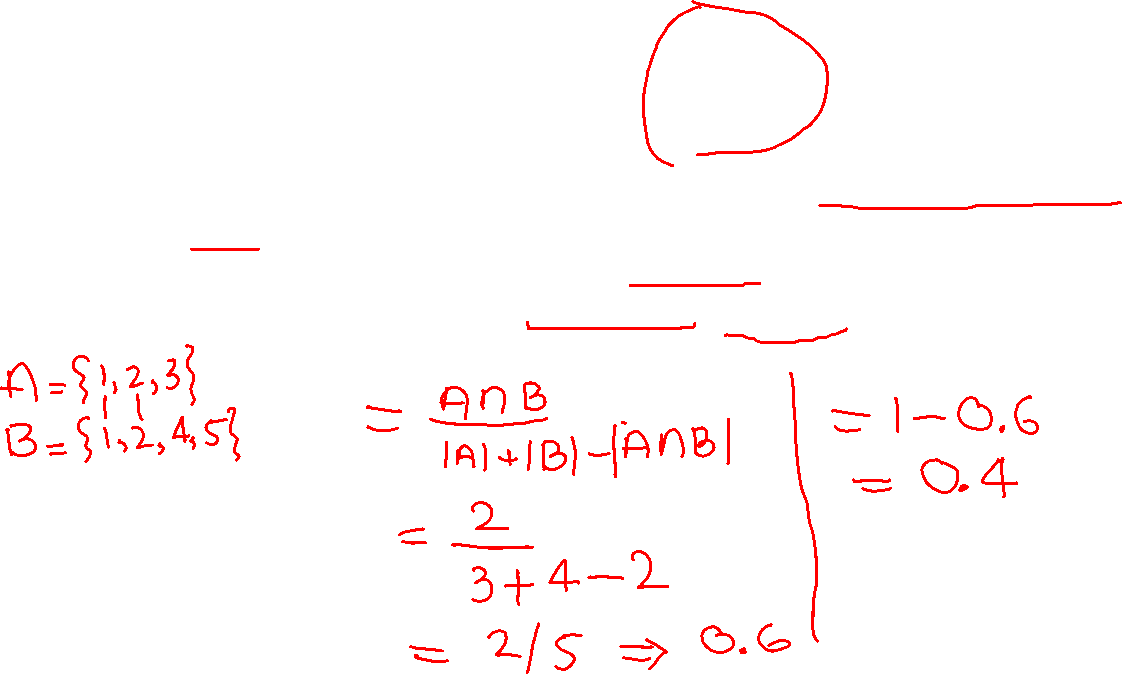 A = {1, 2, 3}
B = {1, 2, 4, 5}
= A∩B / |A| + |B| - |A∩B|
= 2 / 3 + 4 - 2
= 2/5 ⇒ 0.6
= 1 - 0.6
= 0.4